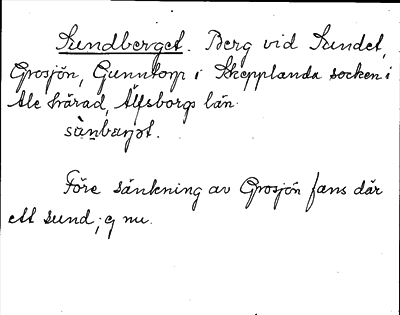 Sundberget. Berg vid Sundet,
Grosjön, Gunntorp i Skepplanda socken i
Ale härad, Älfsborgs län.
Före sänkning av Grosjön fans där
ett sund; ej nu.